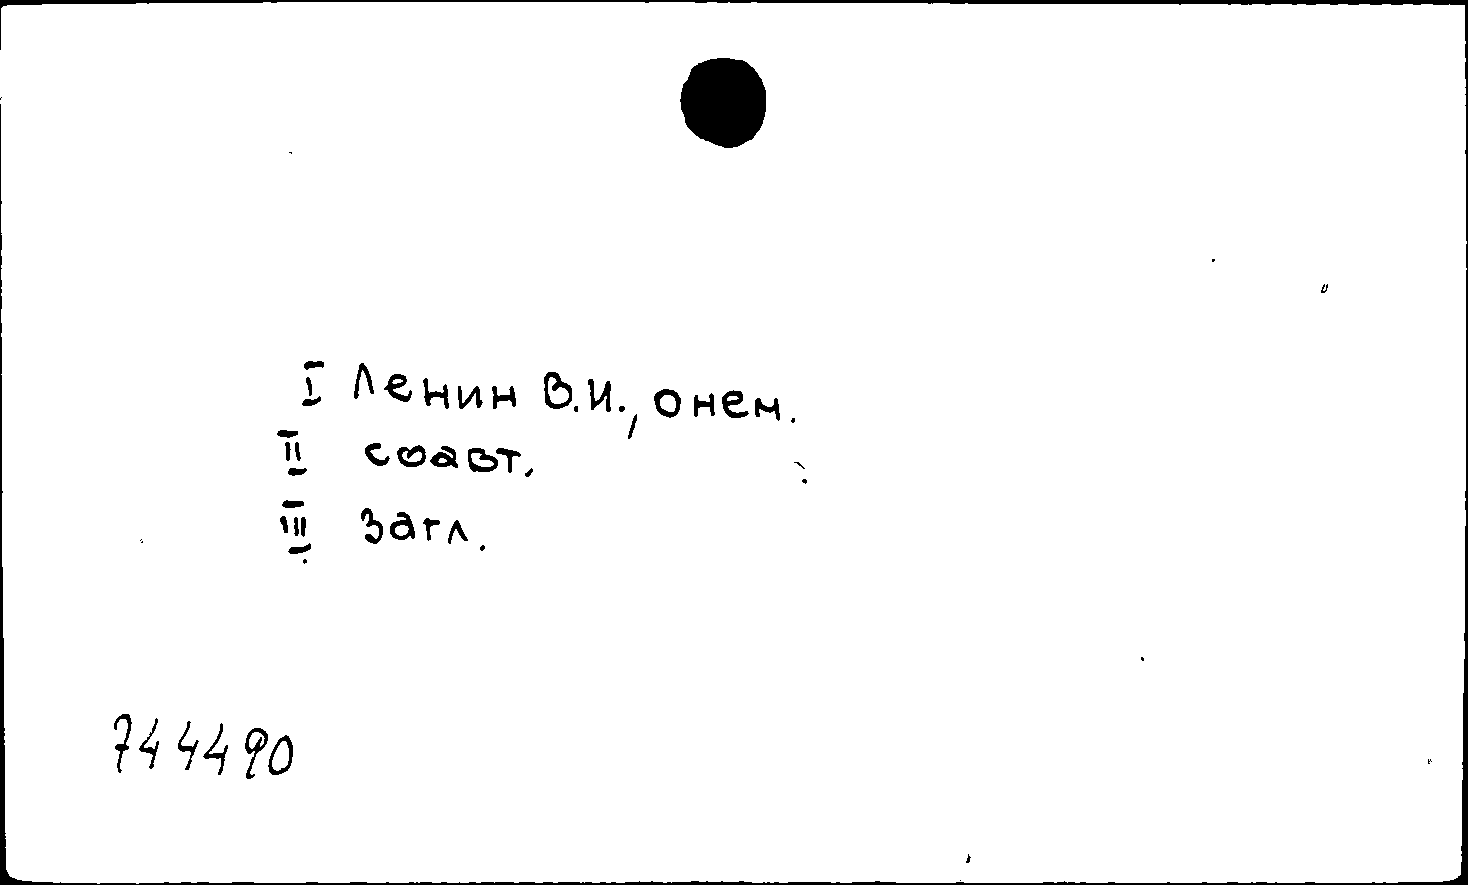 I Ленин В.И., о нем.
II соавт.
III загл.
744490